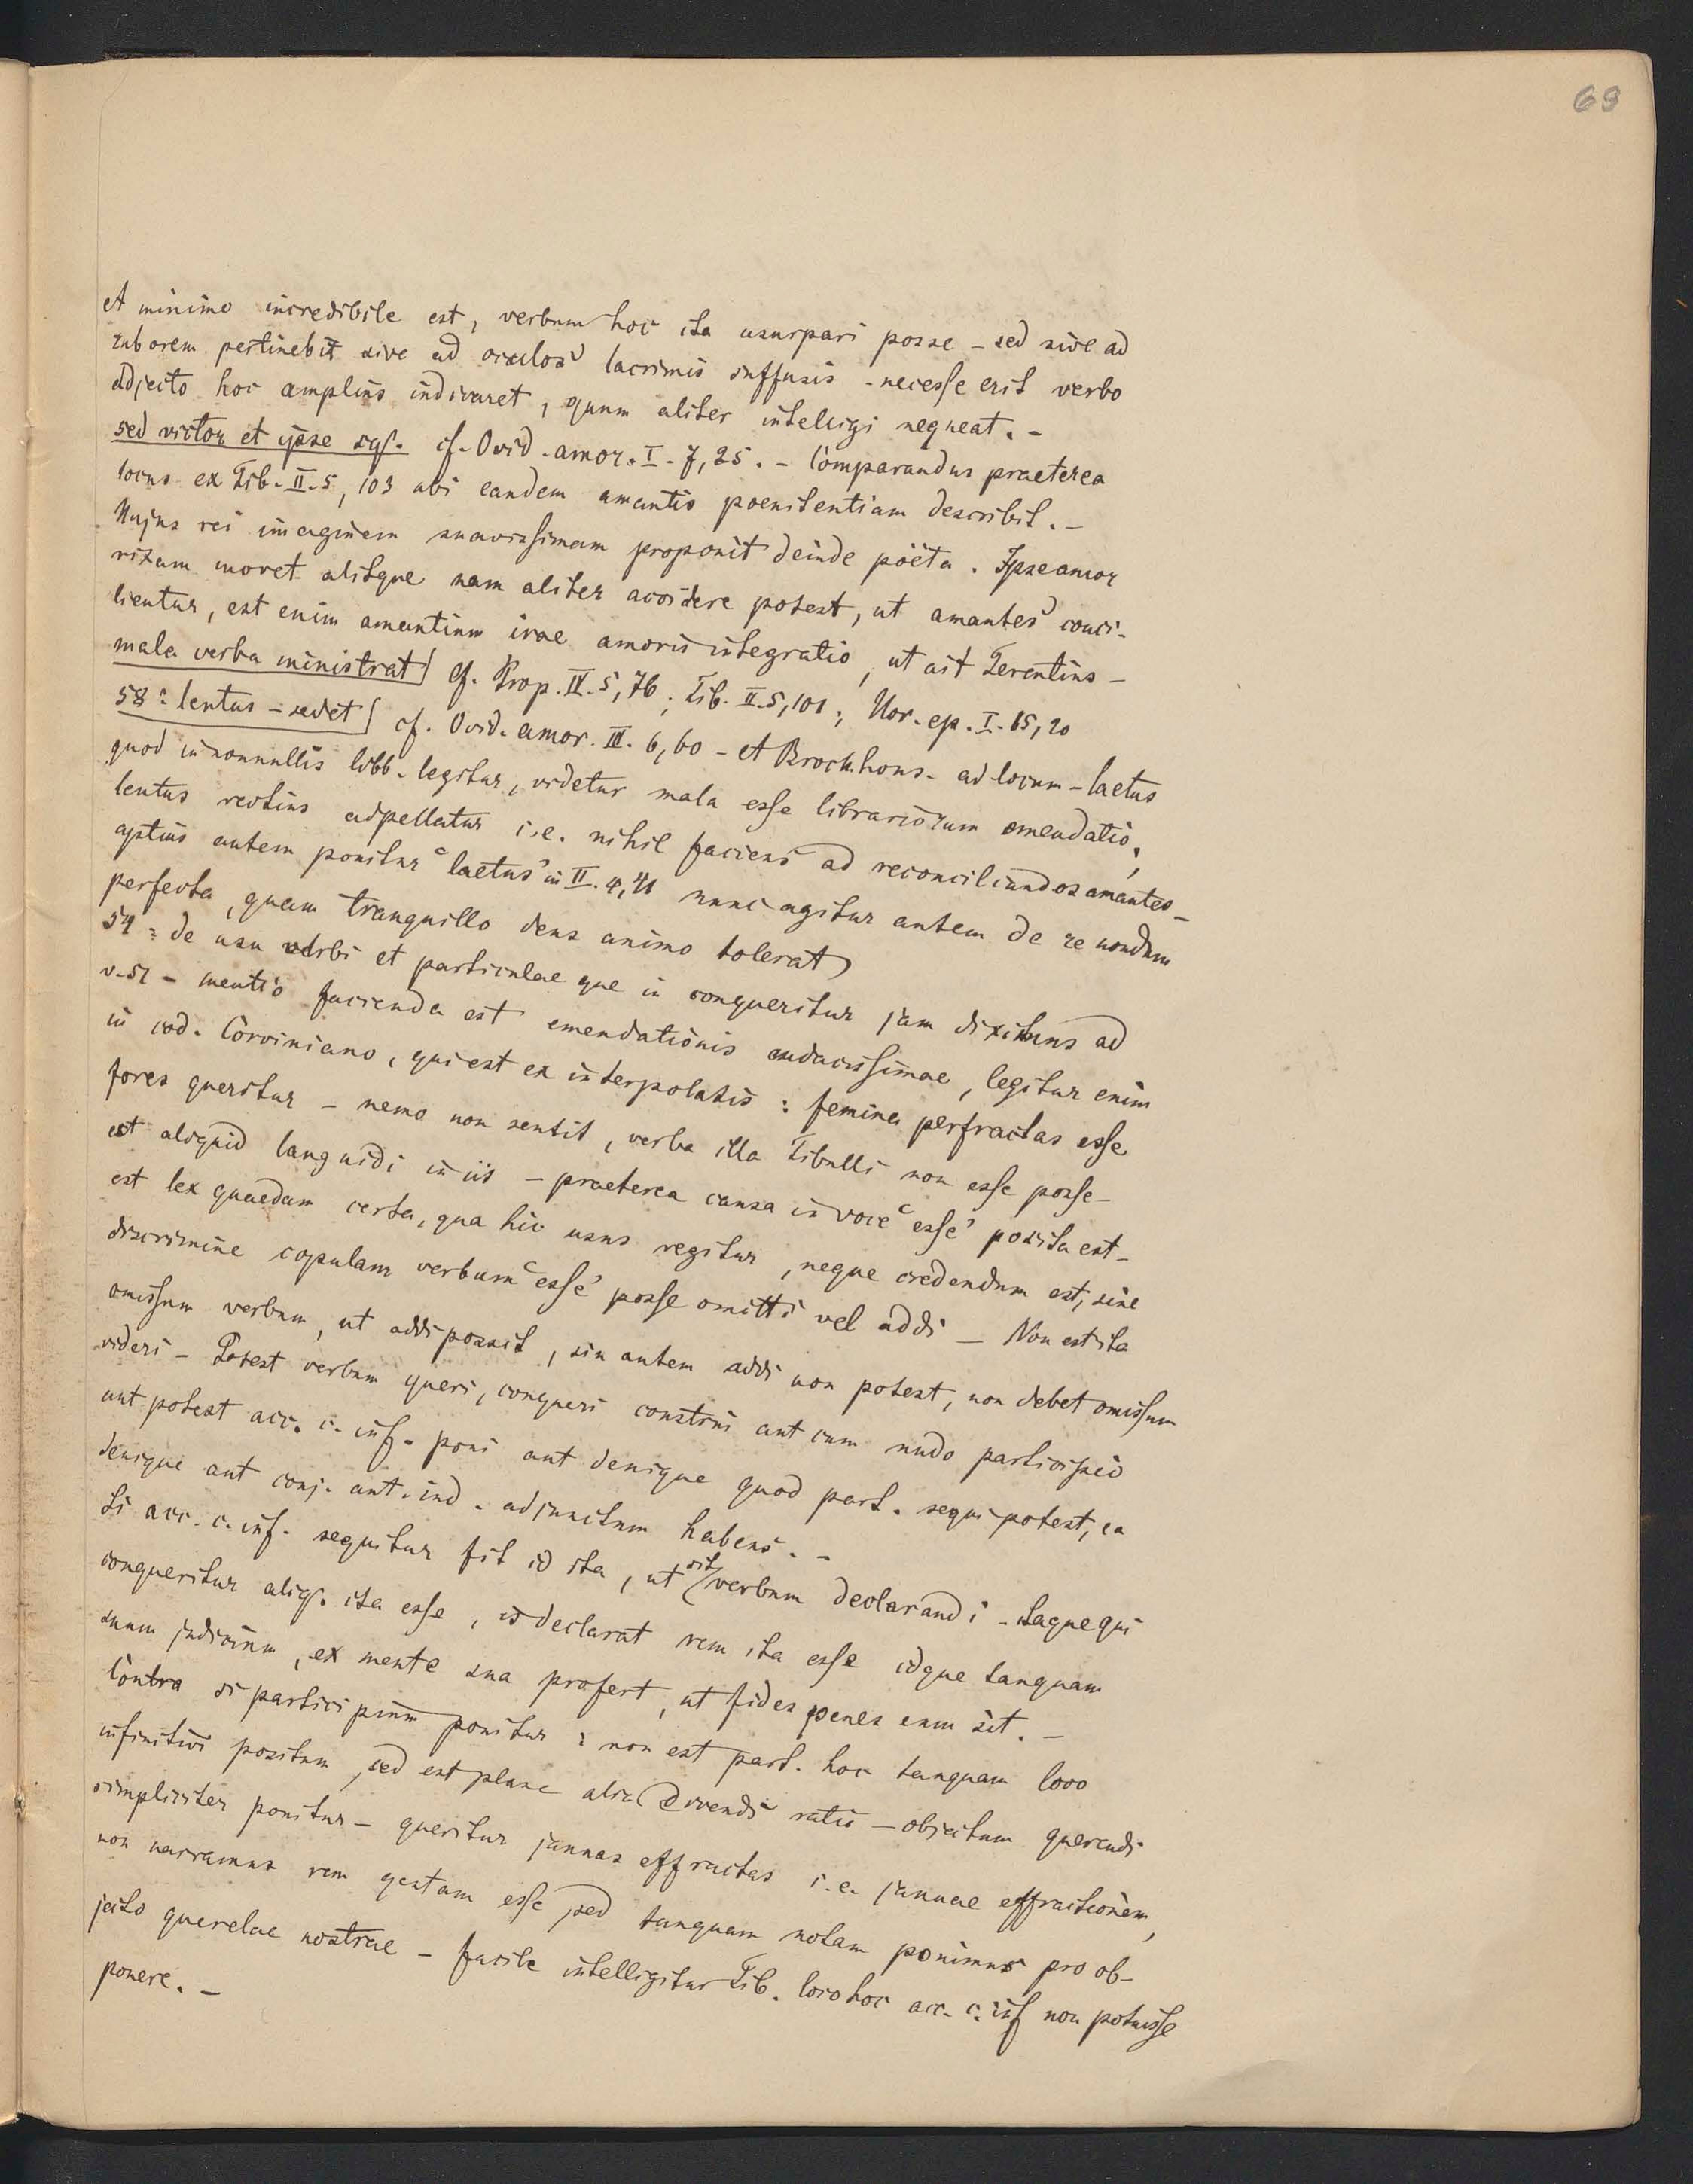 69
et minimo incredibile est, verbum hoc ita usurpari posse – sed sive ad
ruborem pertinebit sive ad oculos lacrimis suffusis – necesse erit verbo
adjecto hoc amplius indicaret, quum aliter intelligi nequeat. –
sed victor et ipse sqs. cf. Ovid. amor. I. 7, 25. – Comparandus praeterea
locus ex Tib. II. 5, 103 ubi eandem amantis poenitentiam describit. –
Hujus rei imaginem suavissimam proponit deinde poëta. Ipse amor
rixam movet alitque nam aliter accidere potest, ut amantes conci-
lientur, est enim amantium irae amoris integratio, ut ait Terentius –
mala verba ministrat] cf. Prop. IV. 5, 76; Tib. II. 5, 101; Hor. ep. I. 15, 20
58: lentus – sedet] cf. Ovid. amor. III. 6, 60 – et Brockhous. ad locum – laetus
quod in nonnullis libb. legitur, videtur mala esse librariorum emendatio,
lentus rectius adpellatur i.e. nihil faciens ad reconciliandos amantes –
aptius autem ponitur "laetus" in II. 4, 41 nunc agitur autem de re nondum
perfecta, quam tranquillo deus animo tolerat)
54: de usu verbi et particulae que in conqueritur jam diximus ad
v. 51 – mentio facienda est emendationis audacissimae, legitur enim
in cod. Corviniano, qui est ex interpolatis: femina perfractas esse
fores queritur – nemo non sentit, verba illa Tibulli non esse posse –
est aliquid languidi in iis – praeterea causa in voce "esse" posita est –
est lex quaedam certa, qua hic usus regitur, neque credendum est, sine
discrimine copulam verbum "esse" posse omitti vel addi – Non est ita
omissum verbum, ut addi possit, sin autem addi non potest, non debet omissum
videri – Potest verbum queri, conqueri construi aut cum nudo participio
aut potest acc. c. inf. poni aut denique quod part. sequi potest, ea
denique aut conj. aut. ind. adjunctum habens. –
Si acc. c. inf. sequitur fit id ita, ut sit verbum declarandi – itaque qui
conqueritur aliqs. ita esse, is declarat rem ita esse idque tanquam
suum judicium, ex mente sua profert, ut fides penes eum sit. –
Contra si participium ponitur: non est part. hoc tanquam loco
infinitivi positum, sed est plane alia dicendi ratio – objectum querendi
simpliciter ponitur – queritur januas effractas i.e. januae effractionem,
non narramus rem gestam esse sed tanquam notam ponimus pro ob-
jecto querelae nostrae – facile intelligitur Tib. loco hoc acc. c. inf non potuisse
ponere. –